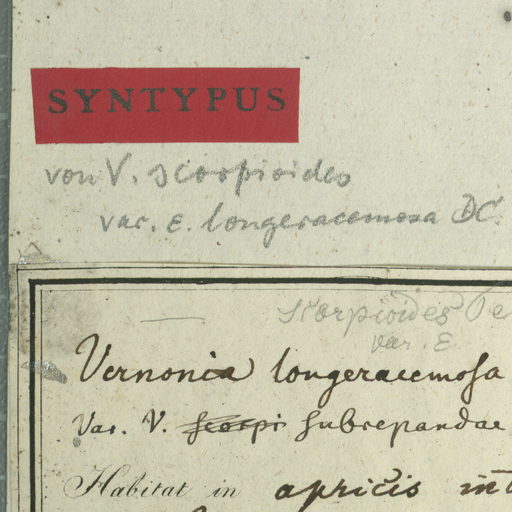 SYNTYPUS
von V. scorpioides
var. ε. longeracemosa DC.
Scorpioides Pe
var. ε
Vernonia longeracemosa
Var. V. scorpi subrepandae
Habitat in apricis